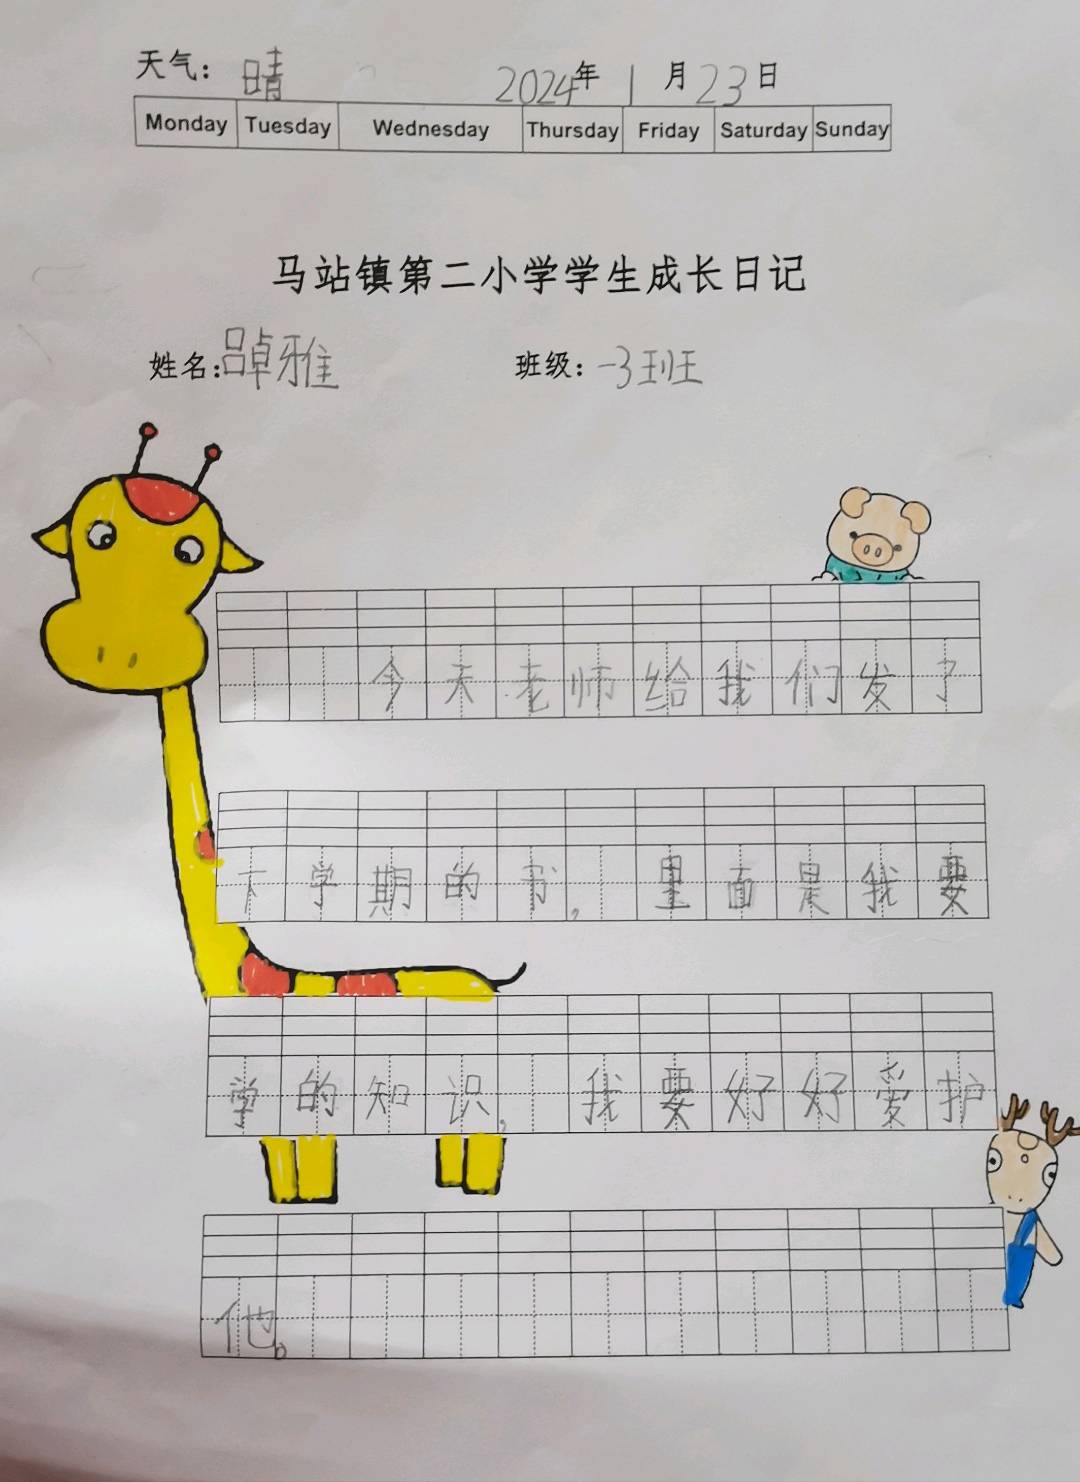 天气：晴 2024年1月23日
Monday Tuesday Wednesday Thursday Friday Saturday Sunday
马站镇第二小学学生成长日记
姓名：吕卓雅 班级：一3班
今天老师给我们发了
下学期的书，里面是我要
学的知识，我要好好爱护
他。